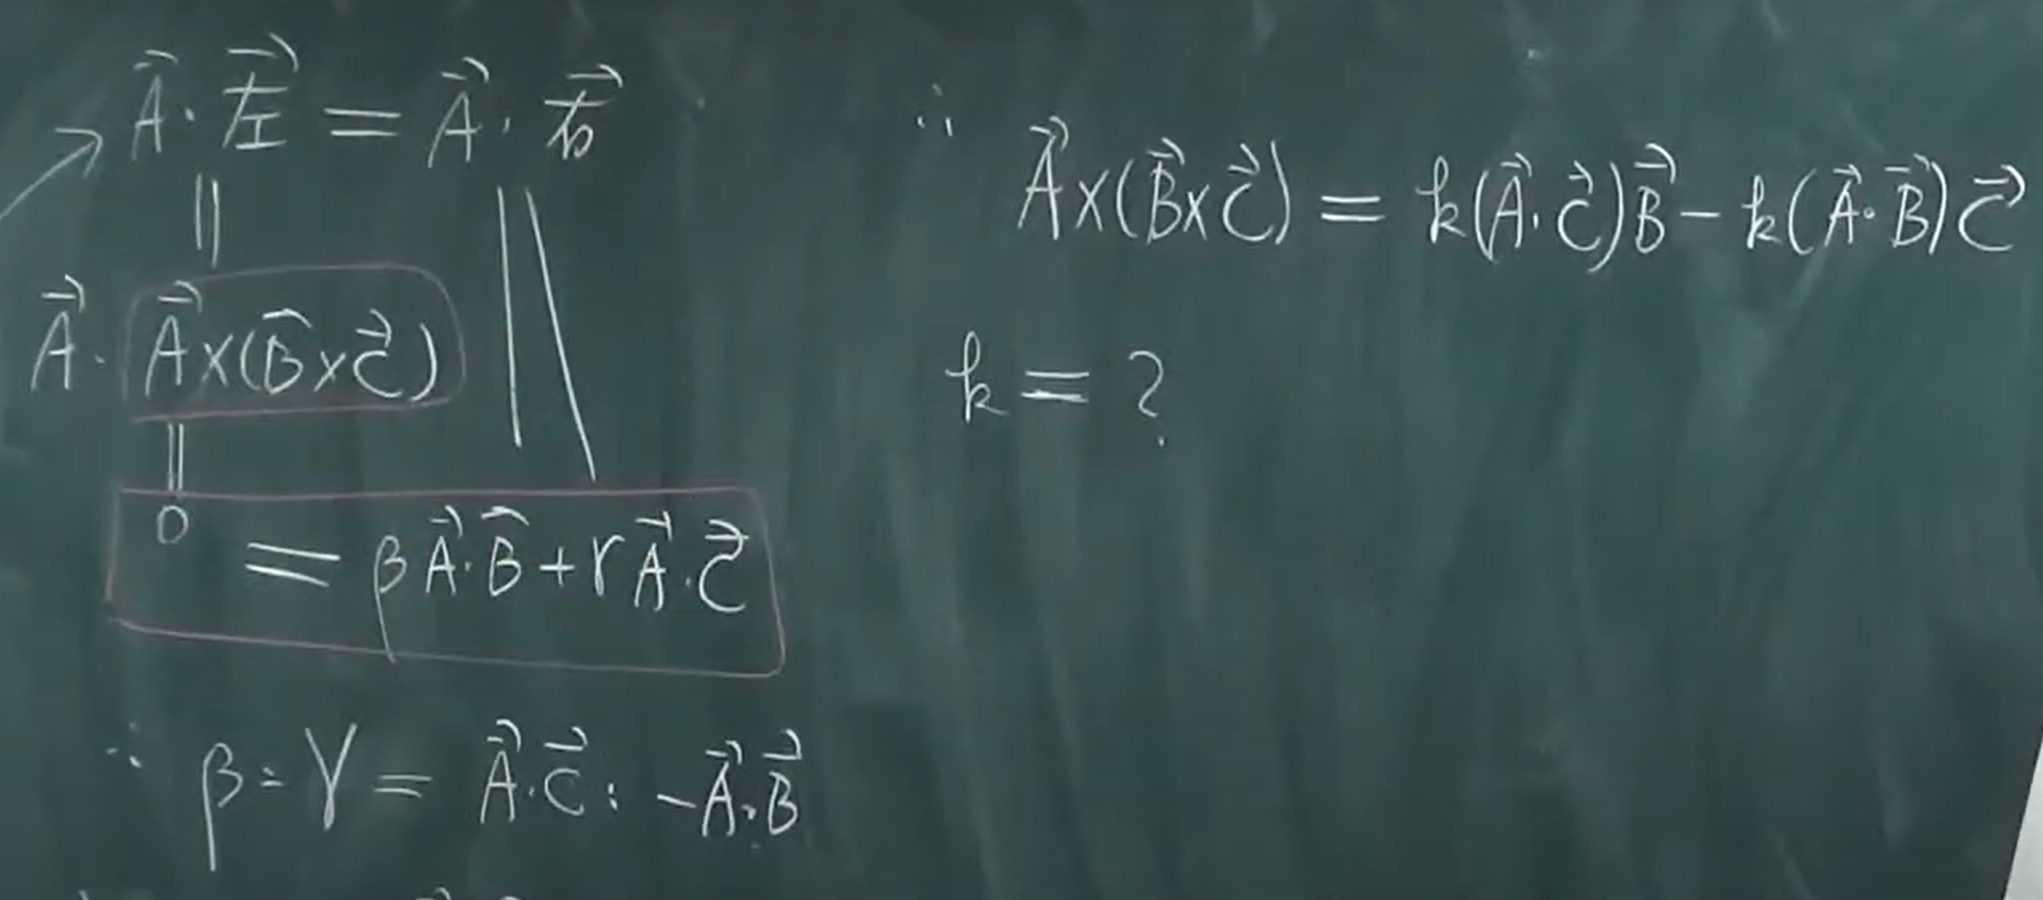 A⃗ · 左⃗ = A⃗ · 右⃗
||
A⃗ · A⃗ × (B⃗ × C⃗)
||
0 = βA⃗·B⃗ + γA⃗·C⃗
∴ β : γ = A⃗·C⃗ : −A⃗·B⃗
∴ A⃗ × (B⃗ × C⃗) = k(A⃗·C⃗)B⃗ − k(A⃗·B⃗)C⃗
k = ?